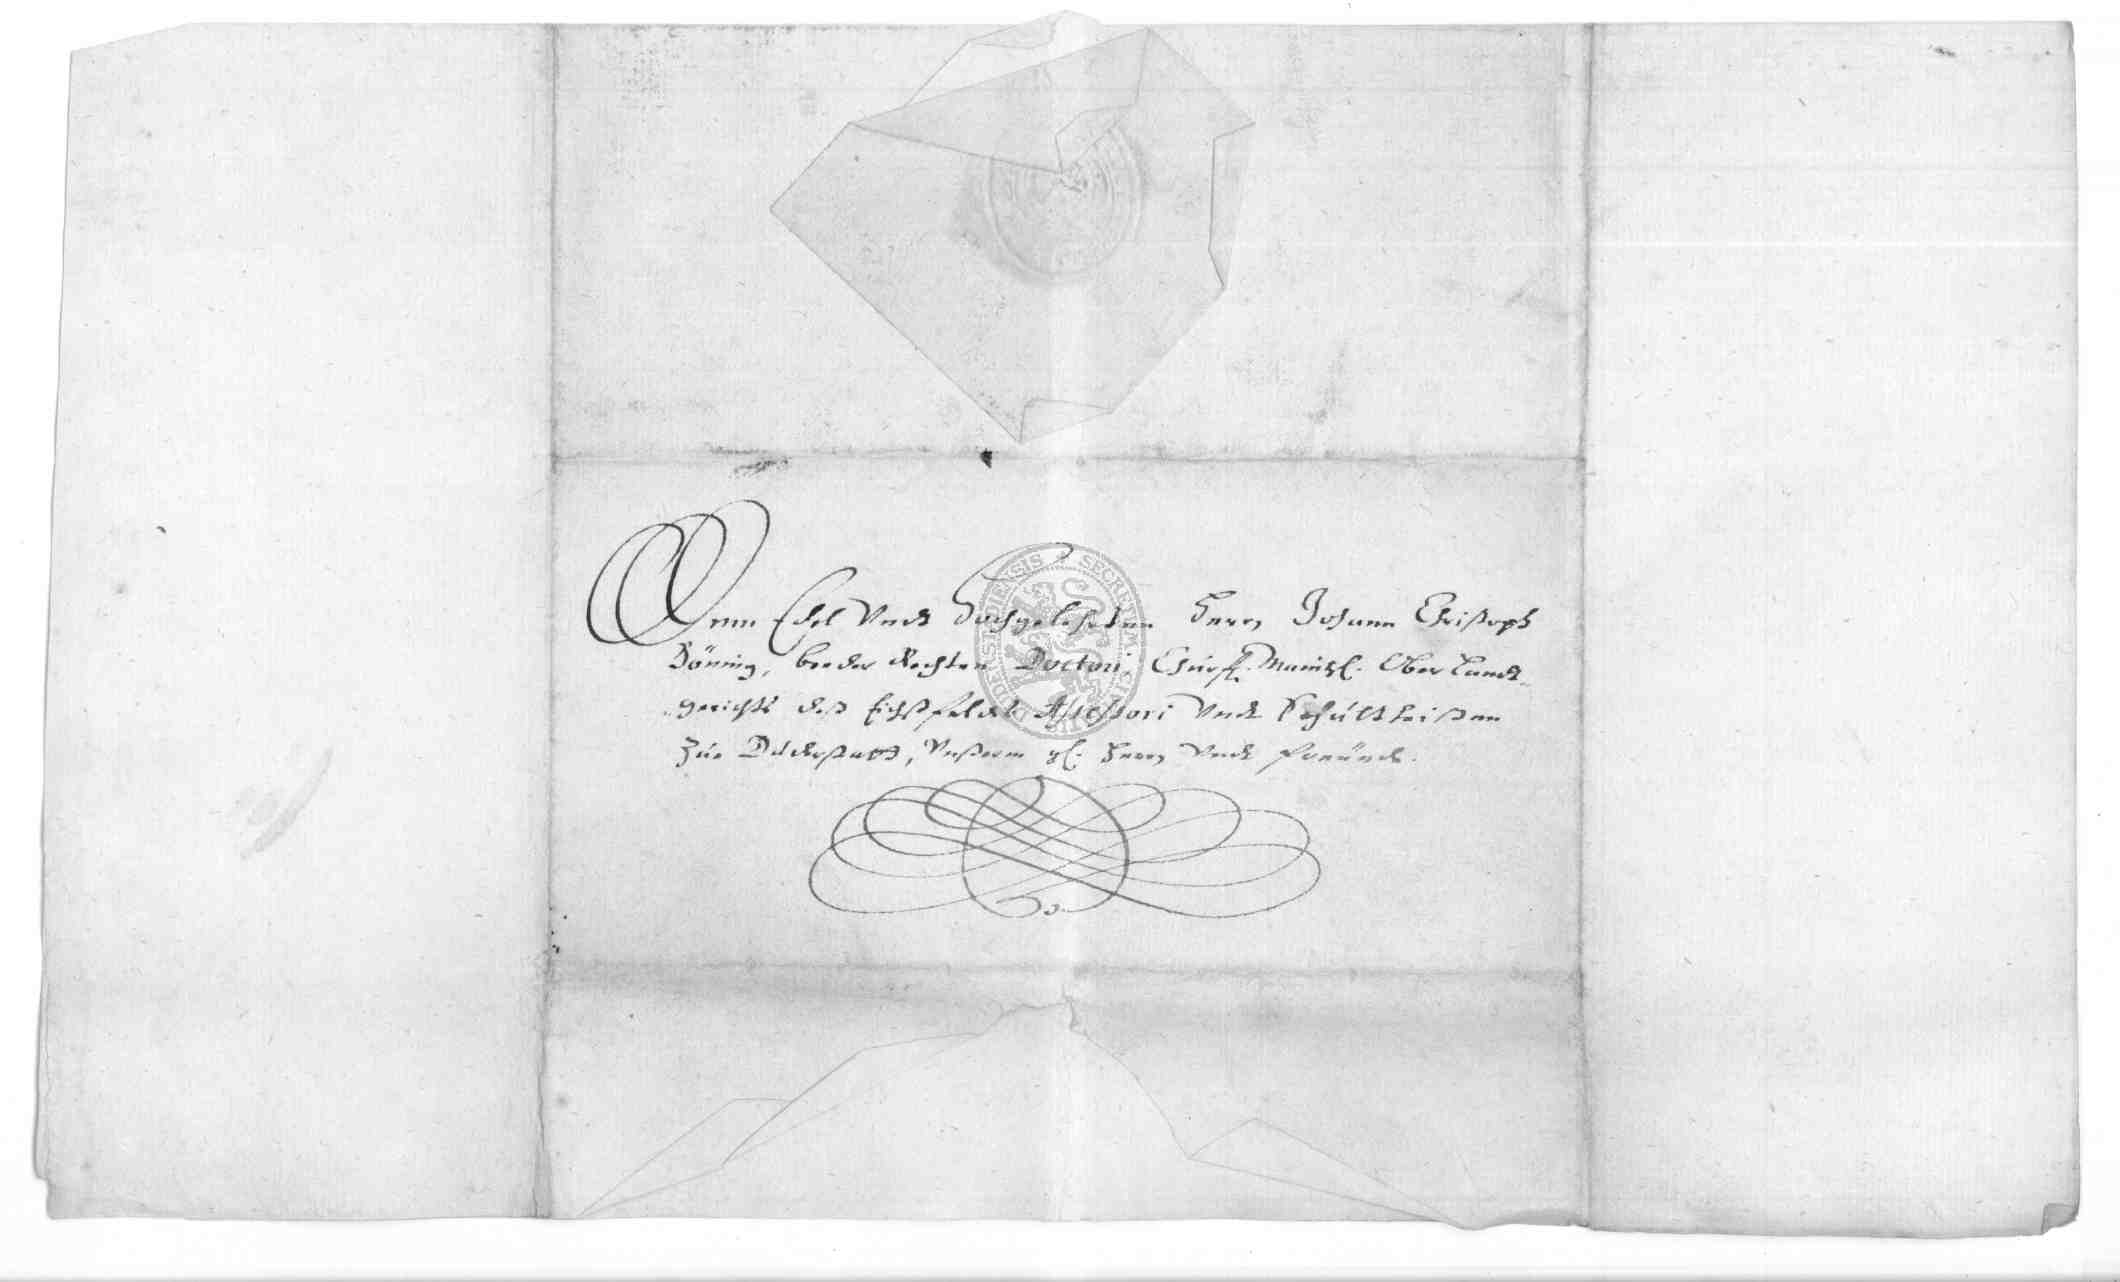 Dem Edel Vndt Hochgelehrten Herrn Johann Christoph
Höning, beeder Rechten Doctori, Churfl. Maintzl. Ober Landt-
gerichts deß Eichßfeldts Assessori Vndt Schultheißen
Zue Duderstatt, Vnßerm gl. Herrn Vndt freündt.